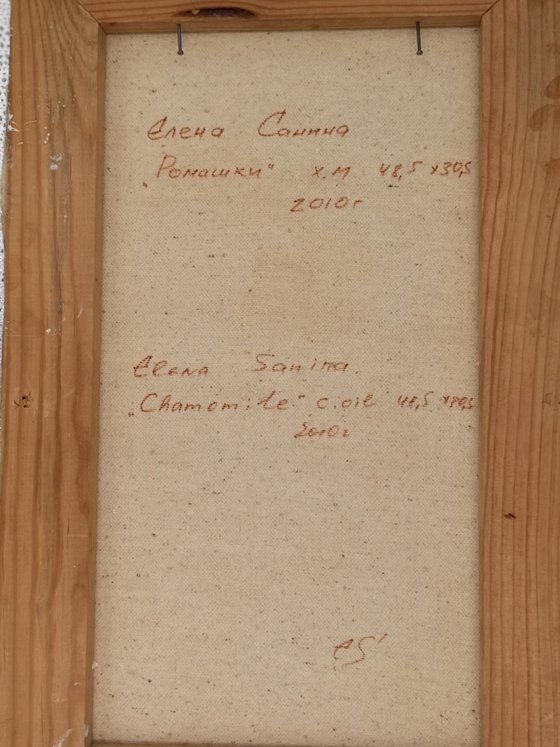 Елена Санина
„Ромашки" х.м 48,5 х30,5
2010г
Elena Sanina.
„Chamomile" c.oil 48,5 x30,5
2010г
eS'